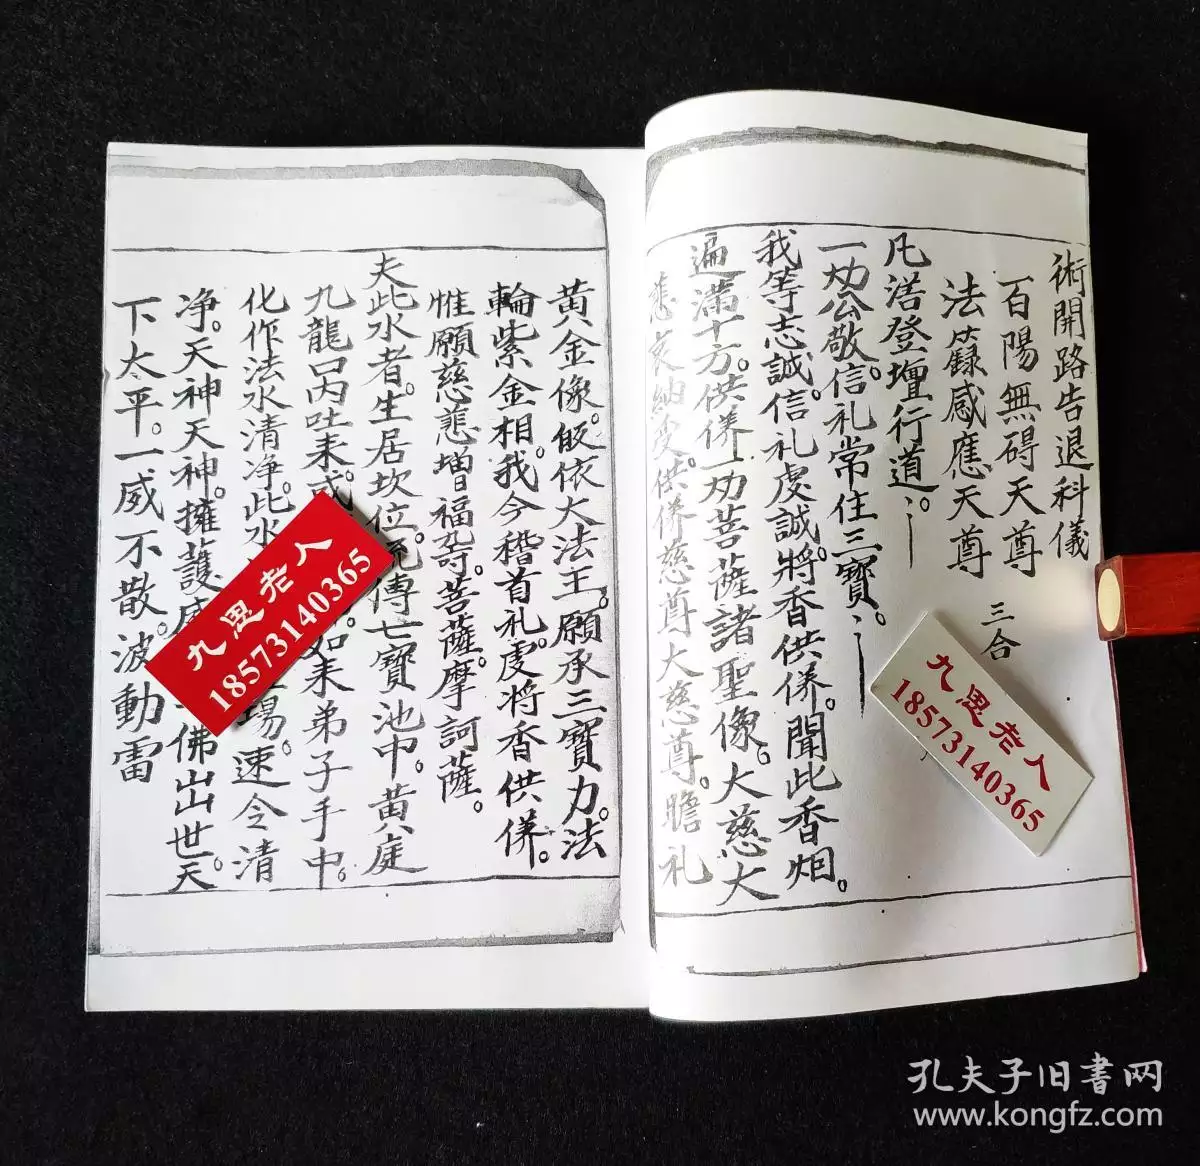 術開路告退科儀
百陽無碍天尊
法籙感應天尊
三合
凡活登壇行道。
一切公敬。信礼常住三寶。
我等志誠。信礼虔誠。將香供養。聞此香烟。
遍滿十方。供养一切菩薩諸聖像。大慈大
悲哀納受。供养慈尊大慈尊。瞻礼
黄金像。皈依大法王。願承三寶力。法
輪紫金相。我今稽首礼。虔將香供养。
惟願慈悲增福寿。菩薩摩訶薩。
夫此水者。生居坎位。流傳七寶池中。黄庭
九龍口内吐来。或如来弟子手中。
化作法水清净。此水場。速令清
净。天神天神。擁護佛出世。天
下太平。一威不散。波動雷
九思老人
18573140365
九思老人
18573140365
孔夫子旧書网
www.kongfz.com